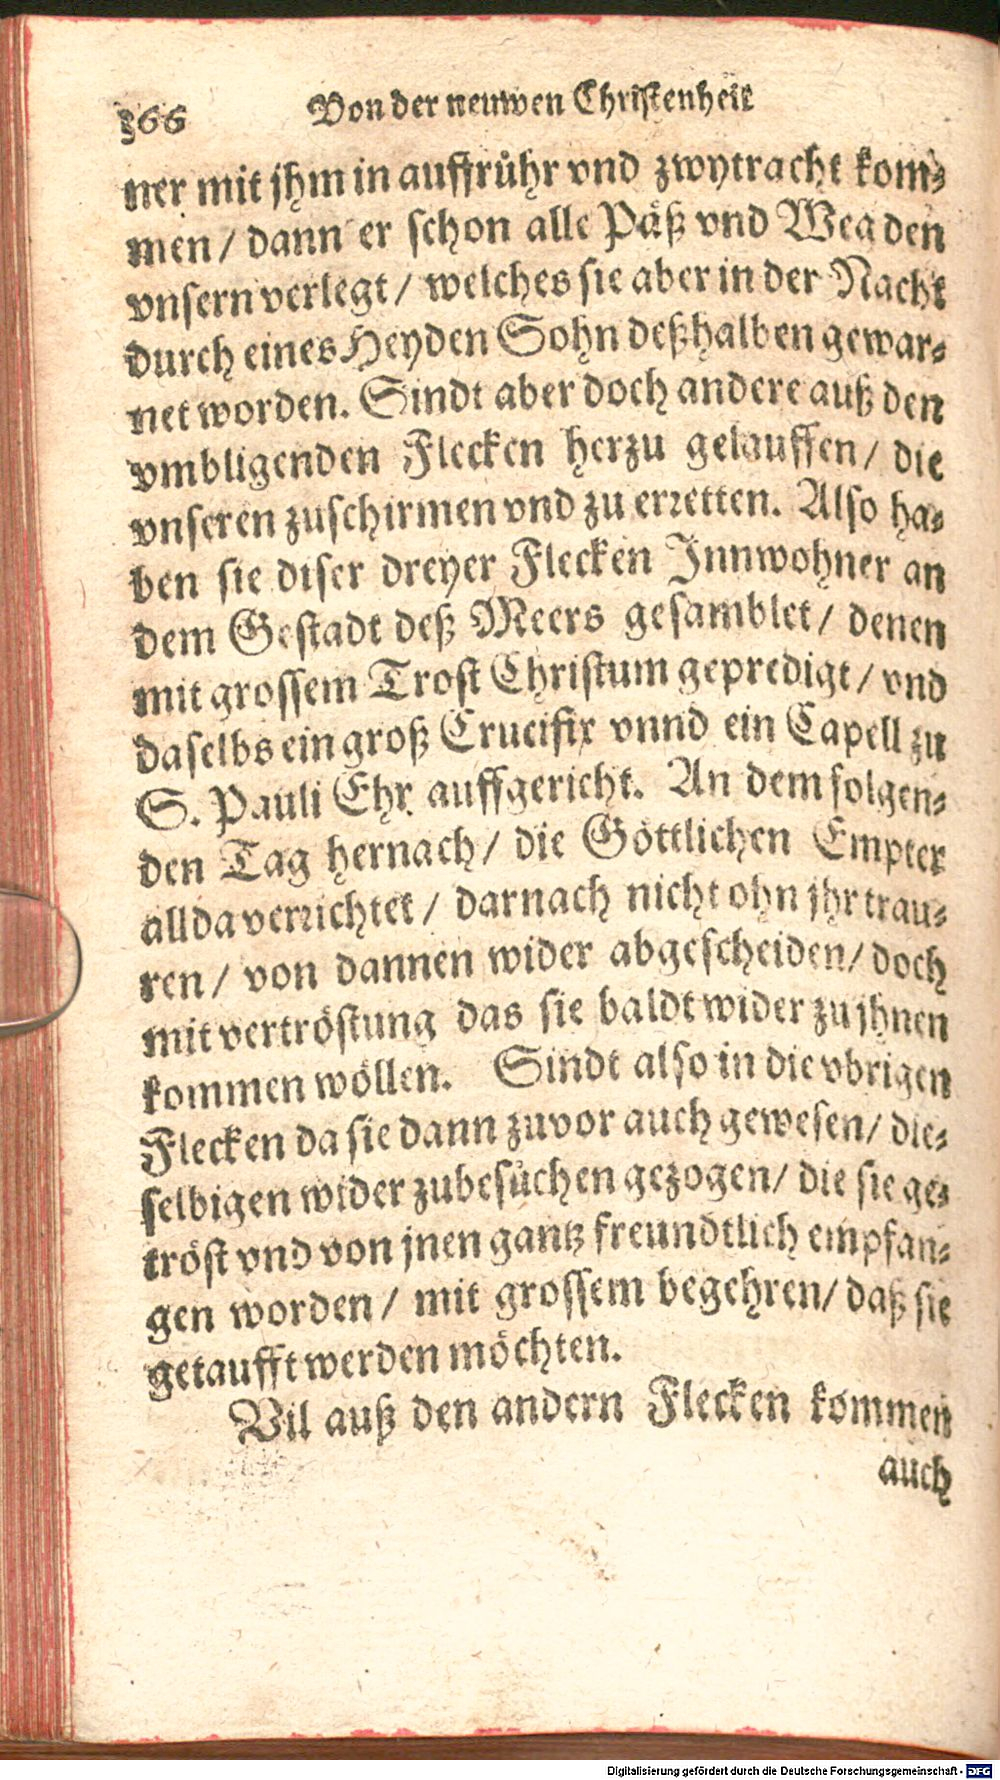 366 Von der neuwen Christenheit
ner mit jhm in auffrůhr vnd zwytracht kom⸗
men / dann er schon alle Päß vnd Weg den
vnsern verlegt / welches sie aber in der Nacht
durch eines Heyden Sohn deßhalben gewar⸗
net worden. Sindt aber doch andere auß den
vmbligenden Flecken herzu gelauffen / die
vnseren zuschirmen vnd zu erretten. Also ha⸗
ben sie diser dreyer Flecken Innwohner an
dem Gestadt deß Meers gesamblet / denen
mit grossem Trost Christum gepredigt / vnd
daselbs ein groß Crucifix vnnd ein Capell zu
S. Pauli Ehr auffgericht. An dem folgen⸗
den Tag hernach / die Göttlichen Empter
allda verrichtet / darnach nicht ohn jhr trau⸗
ren / von dannen wider abgescheiden / doch
mit vertröstung das sie baldt wider zu jhnen
kommen wöllen. Sindt also in die vbrigen
Flecken da sie dann zuvor auch gewesen / die⸗
selbigen wider zubesůchen gezogen / die sie ge⸗
tröst vnd von jnen gantz freundtlich empfan⸗
gen worden / mit grossem begehren / daß sie
getaufft werden möchten.
Vil auß den andern Flecken kommen
auch
Digitalisierung gefördert durch die Deutsche Forschungsgemeinschaft - DFG